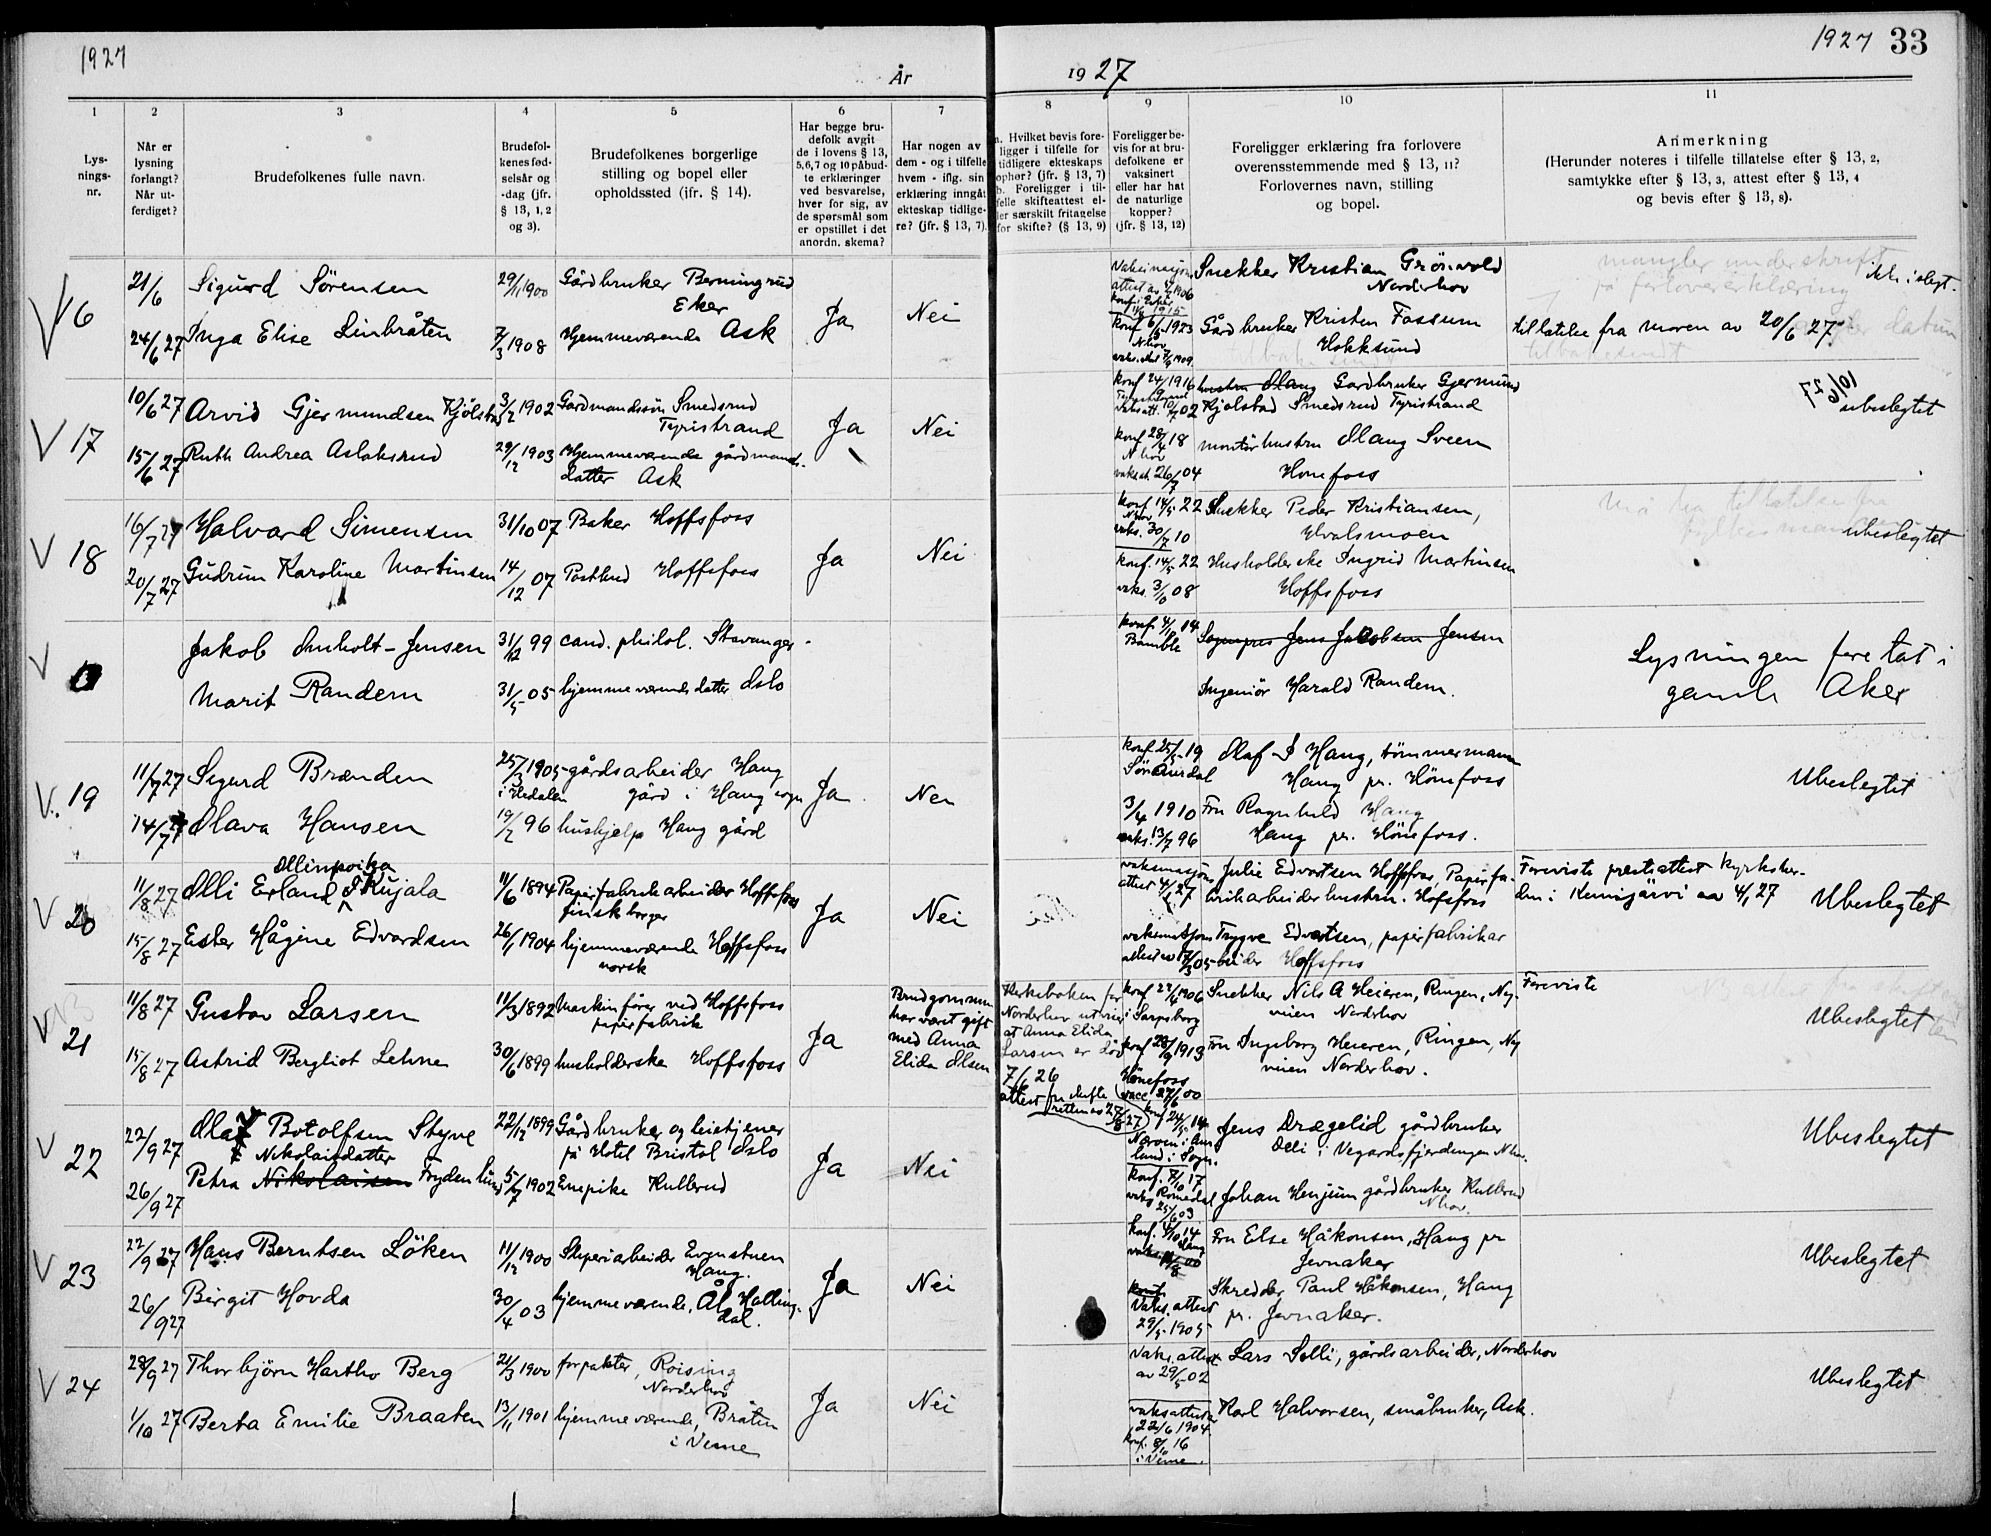 1927
År
19 27
1927 33
1
2
3
4
5
6
7
8
9
10
11
Lys-
nings-
nr.
Når er
lysning
forlangt?
Når ut-
ferdiget?
Brudefolkenes fulle navn.
Brudefol-
kenes fød-
selsår og
-dag (jfr.
§ 13, 1, 2
og 3).
Brudefolkenes borgerlige
stilling og bopel eller
opholdssted (jfr. § 14).
Har begge bru-
defolk avgit
de i lovens § 13,
5,6,7 og 10 påbud-
te erklæringer
ved besvarelse,
hver for sig, av
de spørsmål som
er opstillet i det
anordn. skema?
Har nogen av
dem - og i tilfelle
hvem - iflg. sin
erklæring inngåt
ekteskap tidlige-
re? (jfr. § 13, 7).
a. Hvilket bevis fore-
ligger i tilfelle for
tidligere ekteskaps
ophør? (jfr. § 13, 7)
b. Foreligger i til-
felle skifteattest el-
ler særskilt fritagelse
for skifte? (§ 13, 9)
Foreligger be-
vis for at bru-
defolkene er
vaksinert
eller har hat
de naturlige
kopper?
(jfr. § 13, 12)
Foreligger erklæring fra forlovere
overensstemmende med § 13, 11?
Forlovernes navn, stilling
og bopel.
Anmerkning
(Herunder noteres i tilfelle tillatelse efter § 13, 2,
samtykke efter § 13, 3, attest efter § 13, 4
og bevis efter § 13, 8).
V 16
21/6
24/6 27
Sigurd Sörensen
Inga Elise Linbråten
29/11 1900
7/3 1908
Gårdbruker Berningrud
Eker
Hjemmeværende Ask
Ja
Nei
Snekker Kristian Grönvold
Norderhov
Gårdbruker Kristen Fossum
Hokksund
mangler underskrift
på forlovererklæring
ikke i slegt.
tillatelse fra moren av 20/6 27.
V 17
10/6 27
15/6 27
Arvid Gjermundsen Kjölstad
Ruth Andrea Aslaksrud
3/2 1902
29/12 1903
Gardmandssön Smedsrud
Tyristrand
Hjemmeværende gårdmands-
datter Ask
Ja
Nei
konf 24/ 1916
Gardbruker Gjermund
Kjölstad Smedsrud Tyristrand
konf 28/4 18
Nhov
vaksat. 26/7 04
montörhustru Mang Sveen
Hönefoss
10/6 27
ubeslegtet
V 18
16/7 27
20/7 27
Halvard Simensen
Gudrun Karoline Martinsen
31/10 07
14/12 07
Baker Hoffsfoss
Postbud Hoffsfoss
Ja
Nei
konf 14/5 22
Nhov
vaks. 30/7 10
konf. 14/5 22
vaks. 3/10 08
Snekker Peder Kristiansen,
Hvalsmoen
Husholderske Ingrid Martinsen
Hoffsfoss
ubeslegtet
V
Jakob Anholt-Jensen
Marit Randem
31/12 99
31/5 05
cand. philol. Stavanger
hjemmeværende datter Oslo
konf. 4/ 14
Bamble
Sogneprest Jens Jakobsen Jensen
Ingeniör Harald Randem.
Lysningen foretat i
gamle Aker
V. 19
11/7 27
14/7 27
Sigurd Brænden
Olava Hansen
25/3 1905
i Hedalen
19/2 96
gårdsarbeider Haug
gård i Haug sogn
hushjelp Haug gård
Ja
Nei
konf. 25/5 19
Sör Aurdal
3/4 1910
vaks. 13/7 96
Olaf J Haug, tömmermann
Haug pr. Hönefoss
Fru Ragnhild Haug
Haug pr. Hönefoss.
Ubeslegtet
V 20
11/8 27
15/8 27
Ollinpoika
Olli Erland Kujala
Ester Hågine Edvardsen
11/6 1894
26/1 1904
Papirfabrikarbeider Hoffsfoss
finsk borger
hjemmeværende Hoffsfoss
norsk
Ja
Nei
vaksinasjons
attest 4/ 27
vaksinasjons
attest av 17/3 05
Julie Edvartsen Hoffsfoss, Papirfa-
brikarbeiderhustru. Hofsfoss
Trygve Edvartsen, papirfabrikar
beider Hoffsfoss
Foreviste prestattest kyrkoher-
den i Kemijärvi av 4/ 27
Ubeslegtet
V 21
11/8 27
15/8 27
Gustav Larsen
Astrid Bergliot Lehne
11/3 1892
30/6 1899
Maskinförer ved Hoffsfoss
papirfabrik
husholderske Hoffsfoss
Ja
Brudgommen
har vært gift
med Anna
Elida Olsen
Kirkeboken for
Norderhov utviser
at Anna Elida
Larsen er död
7/6 26
attest fra skifte
retten av 27/8 27
konf 29/4 1906
i Sarpsborg
konf 28/9 1913
Hönefoss
vacc 27/6 00
Snekker Nils A Heieren, Ringen, Ny-
veien Norderhov
Fru Ingeborg Heieren, Ringen, Ny
veien Norderhov.
Foreviste
Ubeslegtet
V 22
22/9 27
26/9 27
Olaf Botolfsen Styve
Nikolaisdatter
Petra Nikolaisen Frydenlund
22/12 1899
5/7 1902
Gårdbruker og leietjener
på Hotel Bristol Oslo
Enepike Kullerud
Ja
Nei
konf 24/5 14
konf. 7/10 17
vaks Romedal
25/6 03
Jens Drægelid gårdbruker
Oeli i Vegardsfjerdingen Nhov.
Johan Henjum gårdbruker Kullerud
Nhov.
Ubeslegtet
V 23
22/9 27
26/9 27
Hans Berntsen Löken
Birgit Hovda
11/12 1900
30/4 03
Sliperiarbeider Evenstuen
Haug.
hjemmeværende, Ål Halling-
dal.
Ja
Nei
konf. 4/10 14
Haug
konf
Vaks. attest
29/5 1905
Fru Else Håkonsen, Haug pr
Jevnaker
Skredder Paul Håkonsen, Haug
pr. Jevnaker.
Ubeslegtet
V 24
28/9 27
1/10 27
Thorbjörn Hartho Berg
Berta Emilie Braaten
21/3 1900
13/11 1901
forpakter, Roising
Norderhov
hjemmeværende, Bråten
i Veme
Ja
Nei
Vaks. attest
av 29/5 02
vaksattest
22/6 1904
konf. 8/ 16
i Veme.
Lars Solli, gårdsarbeider, Norderhov
Karl Halvorsen, småbruker, Ask.
Ubeslegtet